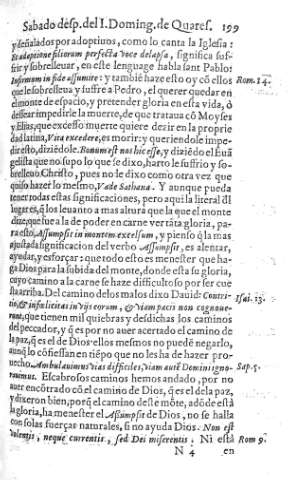 Sabado desp. del I. Doming. de Quares. 199
y señalados por adoptiuos, como lo canta la Iglesia:
Et adoptione filiorum perfecta voce delapsa, significa suf-
frir y sobrelleuar, en este lenguage habla sant Pablo:
Infirmum in fide assumite: y tambiẽ haze esto oy cõ ellos Rom. 14.
que lo sobrelleua y suffre a Pedro, el querer quedar en
el monte de espacio, y pretender gloria en esta vida, ò
dessear impedirle la muerte, de que trataua cõ Moyses
y Elias, que excesso muerte quiere dezir en la proprie
dad latina, Vita excedere, es morir: y queriendole impe-
dir esto, diziẽdole. Bonum est nos hic esse, y diziẽdo el Euã
gelista que no supo lo que se dixo, harto le suffrio y so-
brelleuo Christo, pues no le dixo como otra vez que
quiso hazer lo mesmo, Vade Sathana. Y aunque pueda
tener todas estas significaciones, pero aqui la literal dl
lugar es, q̃ los leuanto a mas altura que la que el monte
dize, que fue a la de poder en carne ver tãta gloria, pa-
ra esto, Assumpsit in montem excelsum, y pienso q̃ la mas
ajustada significacion del verbo Assumpsit, es alentar,
ayudar, y esforçar: que todo esto es menester que ha-
ga Dios para la subida del monte, donde esta su gloria,
cuyo camino a la carne se haze difficultoso por ser cue
sta arriba. Del camino de los malos dixo Dauid: Contri-
tio, & infælicitas in vijs eorum, & viam pacis non cognoue- Psal. 13.
runt, que tienen mil quiebras y desdichas los caminos
del peccador, y q̃ es por no auer acertado el camino de
la paz, q̃ es el de Dios: ellos mesmos no puedẽ negarlo,
aunq̃ lo cõfiessan en tiẽpo que no les ha de hazer pro-
uecho, Ambulauimus vias difficiles, viam autẽ Domini igno- Sap. 5.
rauimus. Escabrosos caminos hemos andado, por no
auer encõtrado cõ el camino de Dios, q̃ es el de la paz,
y dixeron bien, porq̃ el camino deste mõte, adõde està
la gloria, ha menester el Assumpsit de Dios, no se halla
con solas fuerças naturales, si no ayuda Dios: Non est
volentis, neque currentis, sed Dei miserentis: Ni està Rom 9.
N 4 en